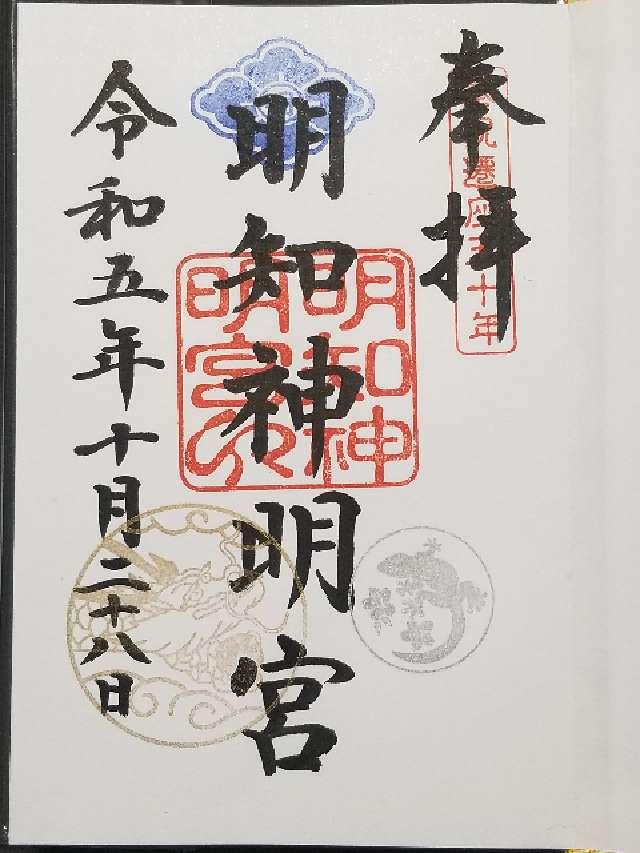 奉拝
遷座五十年
明知神明宮
明知神
明宮
令和五年十月二十八日